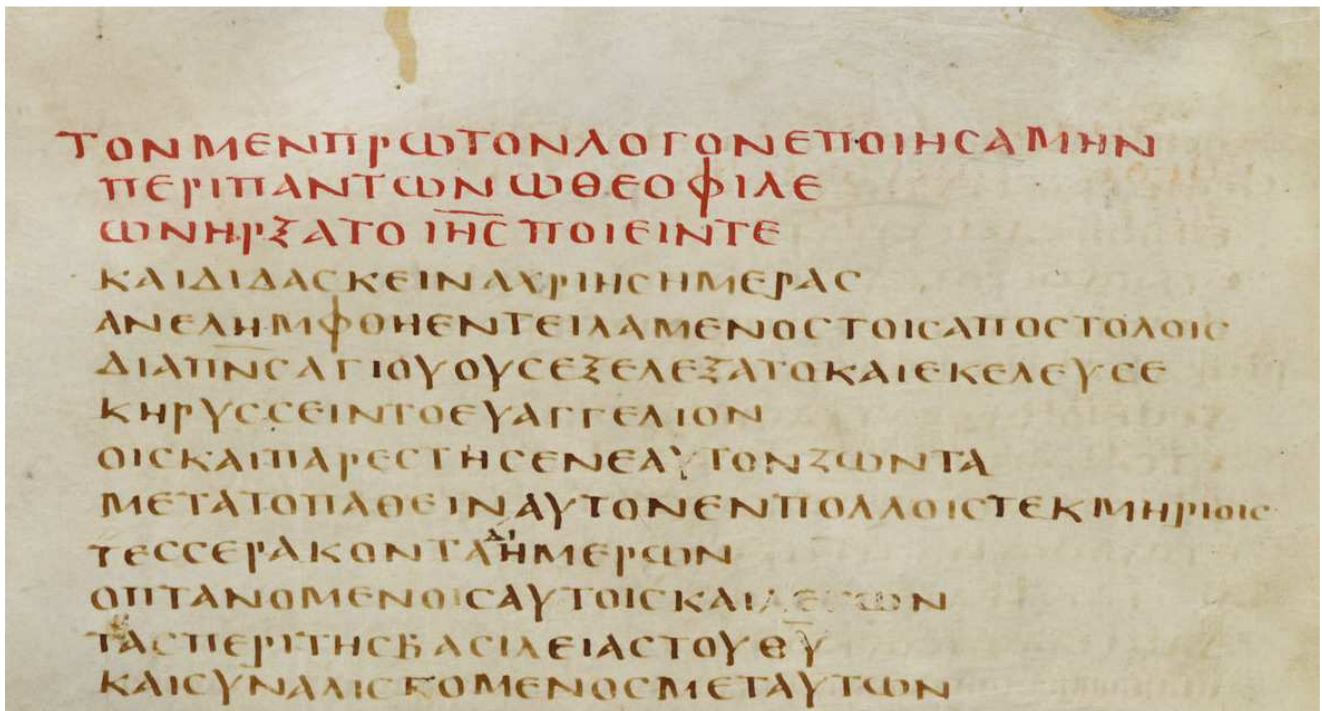 ΤΟΝΜΕΝΠΡΩΤΟΝΛΟΓΟΝΕΠΟΙΗСΑΜΗΝ
ΠΕΡΙΠΑΝΤΩΝΩΘΕΟΦΙΛΕ
ΩΝΗΡΞΑΤΟΙΗСΠΟΙΕΙΝΤΕ
ΚΑΙΔΙΔΑСΚΕΙΝΑΧΡΙΗСΗΜΕΡΑС
ΑΝΕΛΗΜΦΘΗΕΝΤΕΙΛΑΜΕΝΟСΤΟΙСΑΠΟСΤΟΛΟΙС
ΔΙΑΠΝСΑΓΙΟΥΟΥСΕΞΕΛΕΞΑΤΟΚΑΙΕΚΕΛΕΥСΕ
ΚΗΡΥССΕΙΝΤΟΕΥΑΓΓΕΛΙΟΝ
ΟΙСΚΑΙΠΑΡΕСΤΗСΕΝΕΑΥΤΟΝΖΩΝΤΑ
ΜΕΤΑΤΟΠΑΘΕΙΝΑΥΤΟΝΕΝΠΟΛΛΟΙСΤΕΚΜΗΡΙΟΙС
ΤΕССΕΡΑΚΟΝΤΑΔΙΗΜΕΡΩΝ
ΟΠΤΑΝΟΜΕΝΟΙСΑΥΤΟΙСΚΑΙΛΕΓΩΝ
ΤΑСΠΕΡΙΤΗСΒΑСΙΛΕΙΑСΤΟΥΘΥ
ΚΑΙСΥΝΑΛΙСΚΟΜΕΝΟСΜΕΤΑΥΤΩΝ